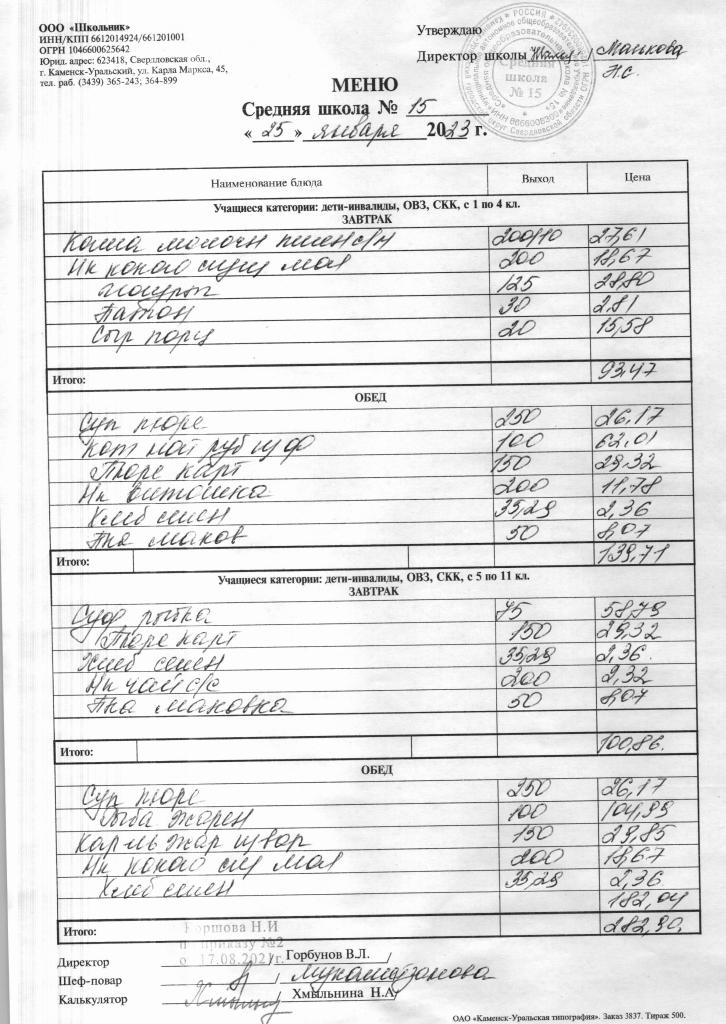 ООО «Школьник»
ИНН/КПП 6612014924/661201001
ОГРН 1046600625642
Юрид. адрес: 623418, Свердловская обл.,
г. Каменск-Уральский, ул. Карла Маркса, 45,
тел. раб. (3439) 365-243; 364-899
Утверждаю
Директор школы / Машкова
Н.С.
Средняя
школа
№ 15
МЕНЮ
Средняя школа № 15
« 25 » января 2023 г.
Наименование блюда Выход Цена
Учащиеся категории: дети-инвалиды, ОВЗ, СКК, с 1 по 4 кл.
ЗАВТРАК
Каша молочн пшен с/м 200/10 27,61
Нк какао сгущ мол 200 18,67
йогурт 125 28,80
Батон 30 2,81
Сыр порц 20 15,58
Итого: 93,47
ОБЕД
Суп пюре 250 26,17
Кот нат руб 100 62,01
Пюре карт 150 29,32
Нк Витошка 200 11,78
Хлеб 35,29 2,36
Пка маков 50 8,07
Итого: 139,71
Учащиеся категории: дети-инвалиды, ОВЗ, СКК, с 5 по 11 кл.
ЗАВТРАК
Суф рыбка 75 58,79
Пюре карт 150 29,32
Хлеб 35,29 2,36.
Нк чай с/с 200 2,32
Пка маковка 50 8,07
Итого: 100,86.
ОБЕД
Суп пюре 250 26,17
Рыба жарен 100 104,99
Кар ль жар 150 29,85
Нк какао сгущ мол 200 18,67
Хлеб 35,29 2,36.
182,04
Итого: 282,90.
Коршова Н.И
по приказу №2
о 17.08.2021г.
Директор / Горбунов В.Л. /
Шеф-повар / /
Калькулятор / Хмыльнина Н.А/
ОАО «Каменск-Уральская типография». Заказ 3837. Тираж 500.